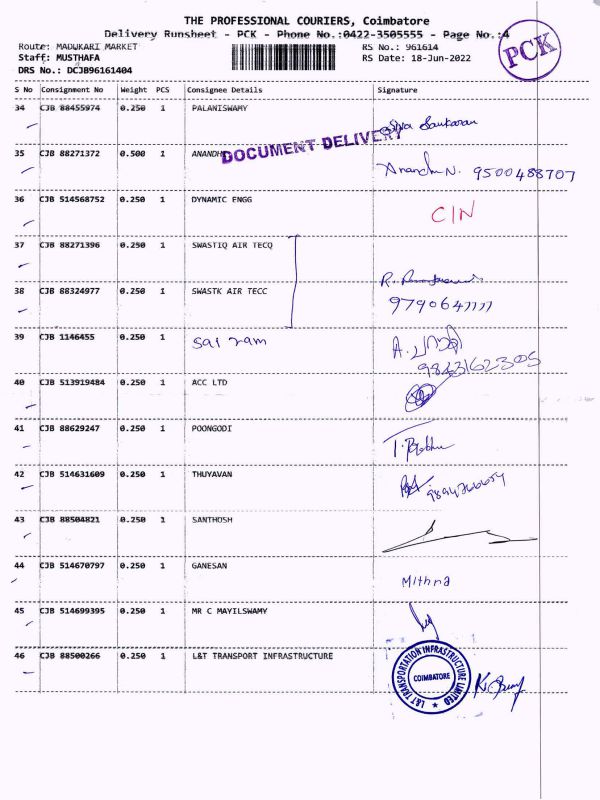 THE PROFESSIONAL COURIERS, Coimbatore
Delivery Runsheet - PCK - Phone No.:0422-3505555 - Page No.:4
PCK
Route: MADUKARI MARKET RS No.: 961614
Staff: MUSTHAFA RS Date: 18-Jun-2022
DRS No.: DCJB96161404
S No Consignment No Weight PCS Consignee Details Signature
34 CJB 88455974 0.250 1 PALANISWAMY
Sankaran
DOCUMENT DELIVERY
35 CJB 88271372 0.500 1 ANANDH
Anandh N. 9500488707
36 CJB 514568752 0.250 1 DYNAMIC ENGG
C/N
37 CJB 88271396 0.250 1 SWASTIQ AIR TECQ
38 CJB 88324977 0.250 1 SWASTK AIR TECC
39 CJB 1146455 0.250 1 Sai ram
40 CJB 513919484 0.250 1 ACC LTD
41 CJB 88629247 0.250 1 POONGODI
T. Prabhu
42 CJB 514631609 0.250 1 THUYAVAN
43 CJB 88504821 0.250 1 SANTHOSH
44 CJB 514670797 0.250 1 GANESAN
Mithra
45 CJB 514699395 0.250 1 MR C MAYILSWAMY
46 CJB 88500266 0.250 1 L&T TRANSPORT INFRASTRUCTURE
L&T TRANSPORTATION INFRASTRUCTURE LIMITED
COIMBATORE